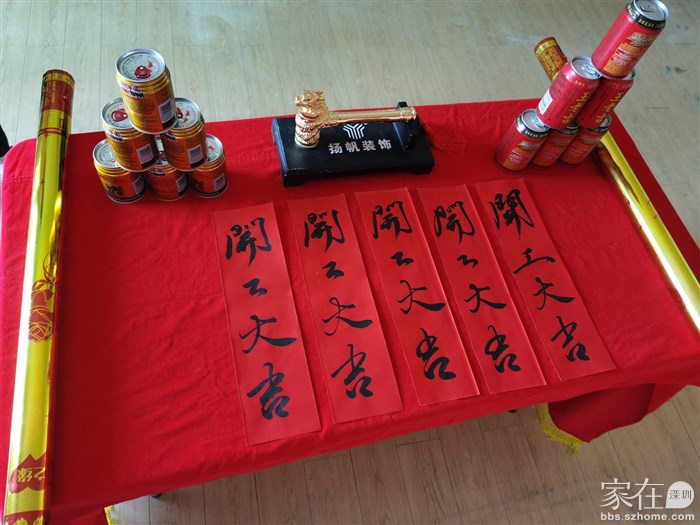 扬帆装饰
開工大吉
開工大吉
開工大吉
開工大吉
開工大吉
家在深圳
bbs.szhome.com